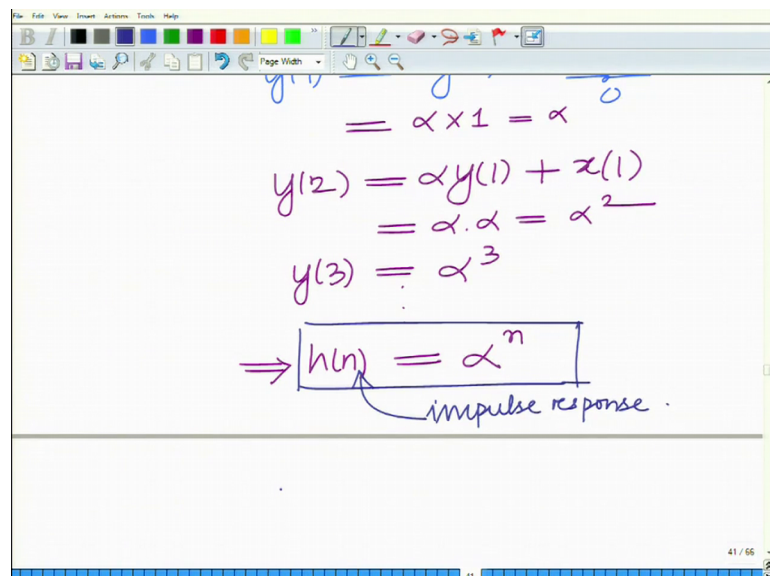 File Edit View Insert Actions Tools Help
B I
Page Width
y(1) = y
0
= α × 1 = α
y(2) = αy(1) + x(1)
= α.α = α²
y(3) = α³
⋮
⇒ h(n) = αⁿ
impulse response.
41 / 66